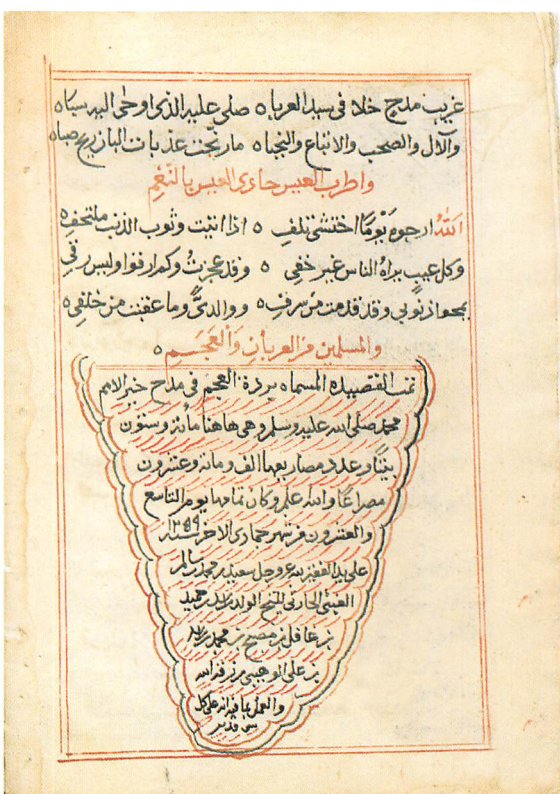 غريب مدح خلا في سيد العرباه صلى عليه الذى اوحى اليه سباه
والآل والصحب والاتباع والنجباه مارنحت عذبات البان ريح صباه
واطرب العيس حادى العيس بالنغم
الله ارجوه يوما اختشى تلفى ه اذا اتيت وثوب الذنب ملتحفى ه
وكل عيب يراه الناس غير خفى ه وقد عجزت وكم ارفوا وليس رفى
يمحو اذنوبى وقد قدمت من سرفى ه ووالدىّ وما عقبت من خلفى ه
والمسلمين من العربان والعجم ه
تمت القصيده المسماه بردة العجم فى مدح خير الامم
محمد صلى الله عليه وسلم وهى هاهنا مائة وستون
بيتا وعدد مصاريعها الف ومائة وعشرون
مصراعا والله اعلم وكان تمامها يوم التاسع
والعشرون من شهر جمادى الاخر سنة ١٢٥٩
على يد الفقير لله عز وجل سعيد بن محمد بن
الحارثى للشيخ الولد بن حميد
بن عاقل بن مصبح بن محمد بن
بن على الوهيبى رزقه الله
والعمل بما فيه انه على كل
شى قدير